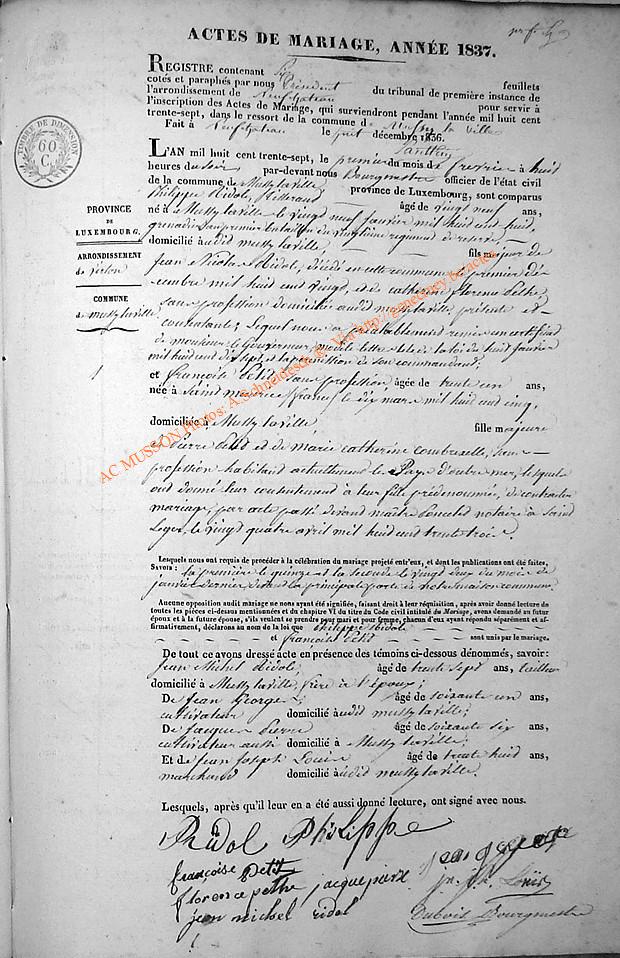 ACTES DE MARIAGE, ANNÉE 1837.
REGISTRE contenant feuillets
cotés et paraphés par nous Président du tribunal de première instance de
l'arrondissement de Neufchateau pour servir à
l'inscription des Actes de Mariage, qui surviendront pendant l'année mil huit cent
trente-sept, dans le ressort de la commune de Mussy la ville
Fait à Neufchateau le huit décembre 1836.
TIMBRE DE DIMENSION
60
C.
L'AN mil huit cent trente-sept, le premier du mois de fevrier à huit
heures du soir par-devant nous Bourgmestre officier de l'état civil
de la commune de Mussy la ville province de Luxembourg, sont comparus
Philippe Ridole, âgé de vingt neuf ans,
né à Mussy la ville le vingt neuf janvier mil huit cent huit,
grenadier au premier bataillon du regiment de reserve,
domicilié audit mussy la ville fils majeur de
Jean Nicolas Ridole, décédé en cette commune le premier dé-
cembre mil huit cent vingt, et de catherine florence Pethe,
sans profession domiciliée audit mussy la ville, présente et
consentante; Lequel nous a préalablement remis un certificat
de monsieur le Gouverneur, modèle lettre de la loi du huit janvier
mil huit cent dix sept, et la permission de son commandant;
et françoise Petit sans profession, âgée de trente un ans,
née à Saint (france) le dix mars mil huit cent cinq,
domiciliée à Mussy la ville fille majeure
de Pierre Petit et de marie catherine combrexelle, sans
profession habitant actuellement le Pays d'outre mer, lesquels
ont donné leur consentement à leur fille prédenommée, de contracter
mariage, par acte passé devant maitre notaire à Saint
Leger, le vingt quatre avril mil huit cent trente trois.
PROVINCE
DE
LUXEMBOURG.
ARRONDISSEMENT
de virton
COMMUNE
de mussy la ville
1
Lesquels nous ont requis de procéder à la célébration du mariage projeté entr'eux, et dont les publications ont été faites,
Savoir: la première le quinze et la seconde le vingt deux du mois de
janvier dernier devant la principale porte de notre maison commune.
Aucune opposition audit mariage ne nous ayant été signifiée, faisant droit à leur réquisition, après avoir donné lecture de
toutes les pièces ci-dessus mentionnées et du chapitre VI du titre du Code civil intitulé du Mariage, avons demandé au futur
époux et à la future épouse, s'ils veulent se prendre pour mari et pour femme, chacun d'eux ayant répondu séparément et af-
firmativement, déclarons au nom de la loi que Philippe Ridole
et françoise Petit sont unis par le mariage.
De tout ce avons dressé acte en présence des témoins ci-dessous dénommés, savoir:
Jean Michel Ridole âgé de trente sept ans, tailleur
domicilié à Mussy la ville, frère à l'époux;
De Jean George âgé de soixante un ans,
cultivateur domicilié audit mussy la ville;
De Jacques Pierre âgé de soixante six ans,
cultivateur aussi domicilié à Mussy la ville;
Et de Jean Joseph Louis âgé de trente huit ans,
marchand domicilié audit mussy la ville;
Lesquels, après qu'il leur en a été aussi donné lecture, ont signé avec nous.
Ridol Philippe
françoise Petit jean george
florence pethe jacque pierre jn. jh. Louis
jean michel ridol Dubois Bourgmestre
AC MUSSON Photos: A.schneidesch @ Via http://geneceney.be/actes